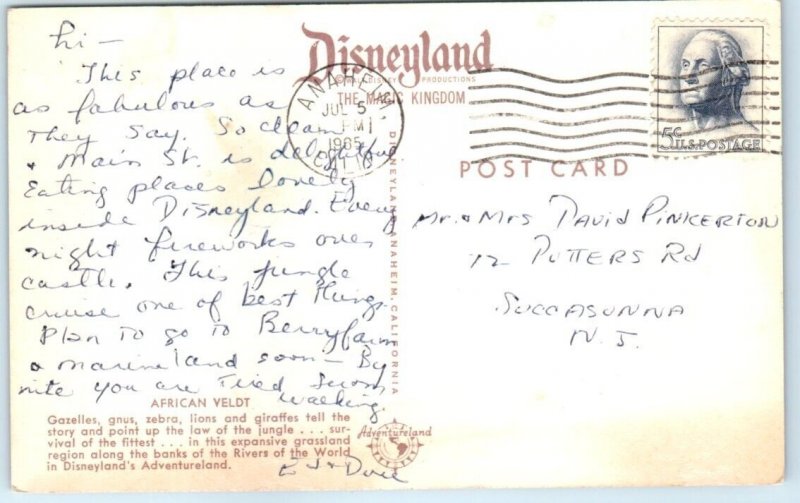 Hi —
This place is
as fabulous as
They say. So clean
& Main St. is delightful
Eating places lovely
inside Disneyland. Every
night fireworks over
castle. This jungle
cruise one of best things.
Plan To go to Berryfarm
& marineland soon — By
nite you are Tired from
walking.
AFRICAN VELDT
Gazelles, gnus, zebra, lions and giraffes tell the
story and point up the law of the jungle . . . sur-
vival of the fittest . . . in this expansive grassland
region along the banks of the Rivers of the World
in Disneyland's Adventureland.
Adventureland
Disneyland
© WALT DISNEY PRODUCTIONS
THE MAGIC KINGDOM
ANAHEIM
JUL 5
PM
1965
CALIF
DISNEYLAND, ANAHEIM, CALIFORNIA
5c U.S. POSTAGE
POST CARD
Mr. & Mrs David Pinkerton
12 Putters Rd
Succasunna
N. J.